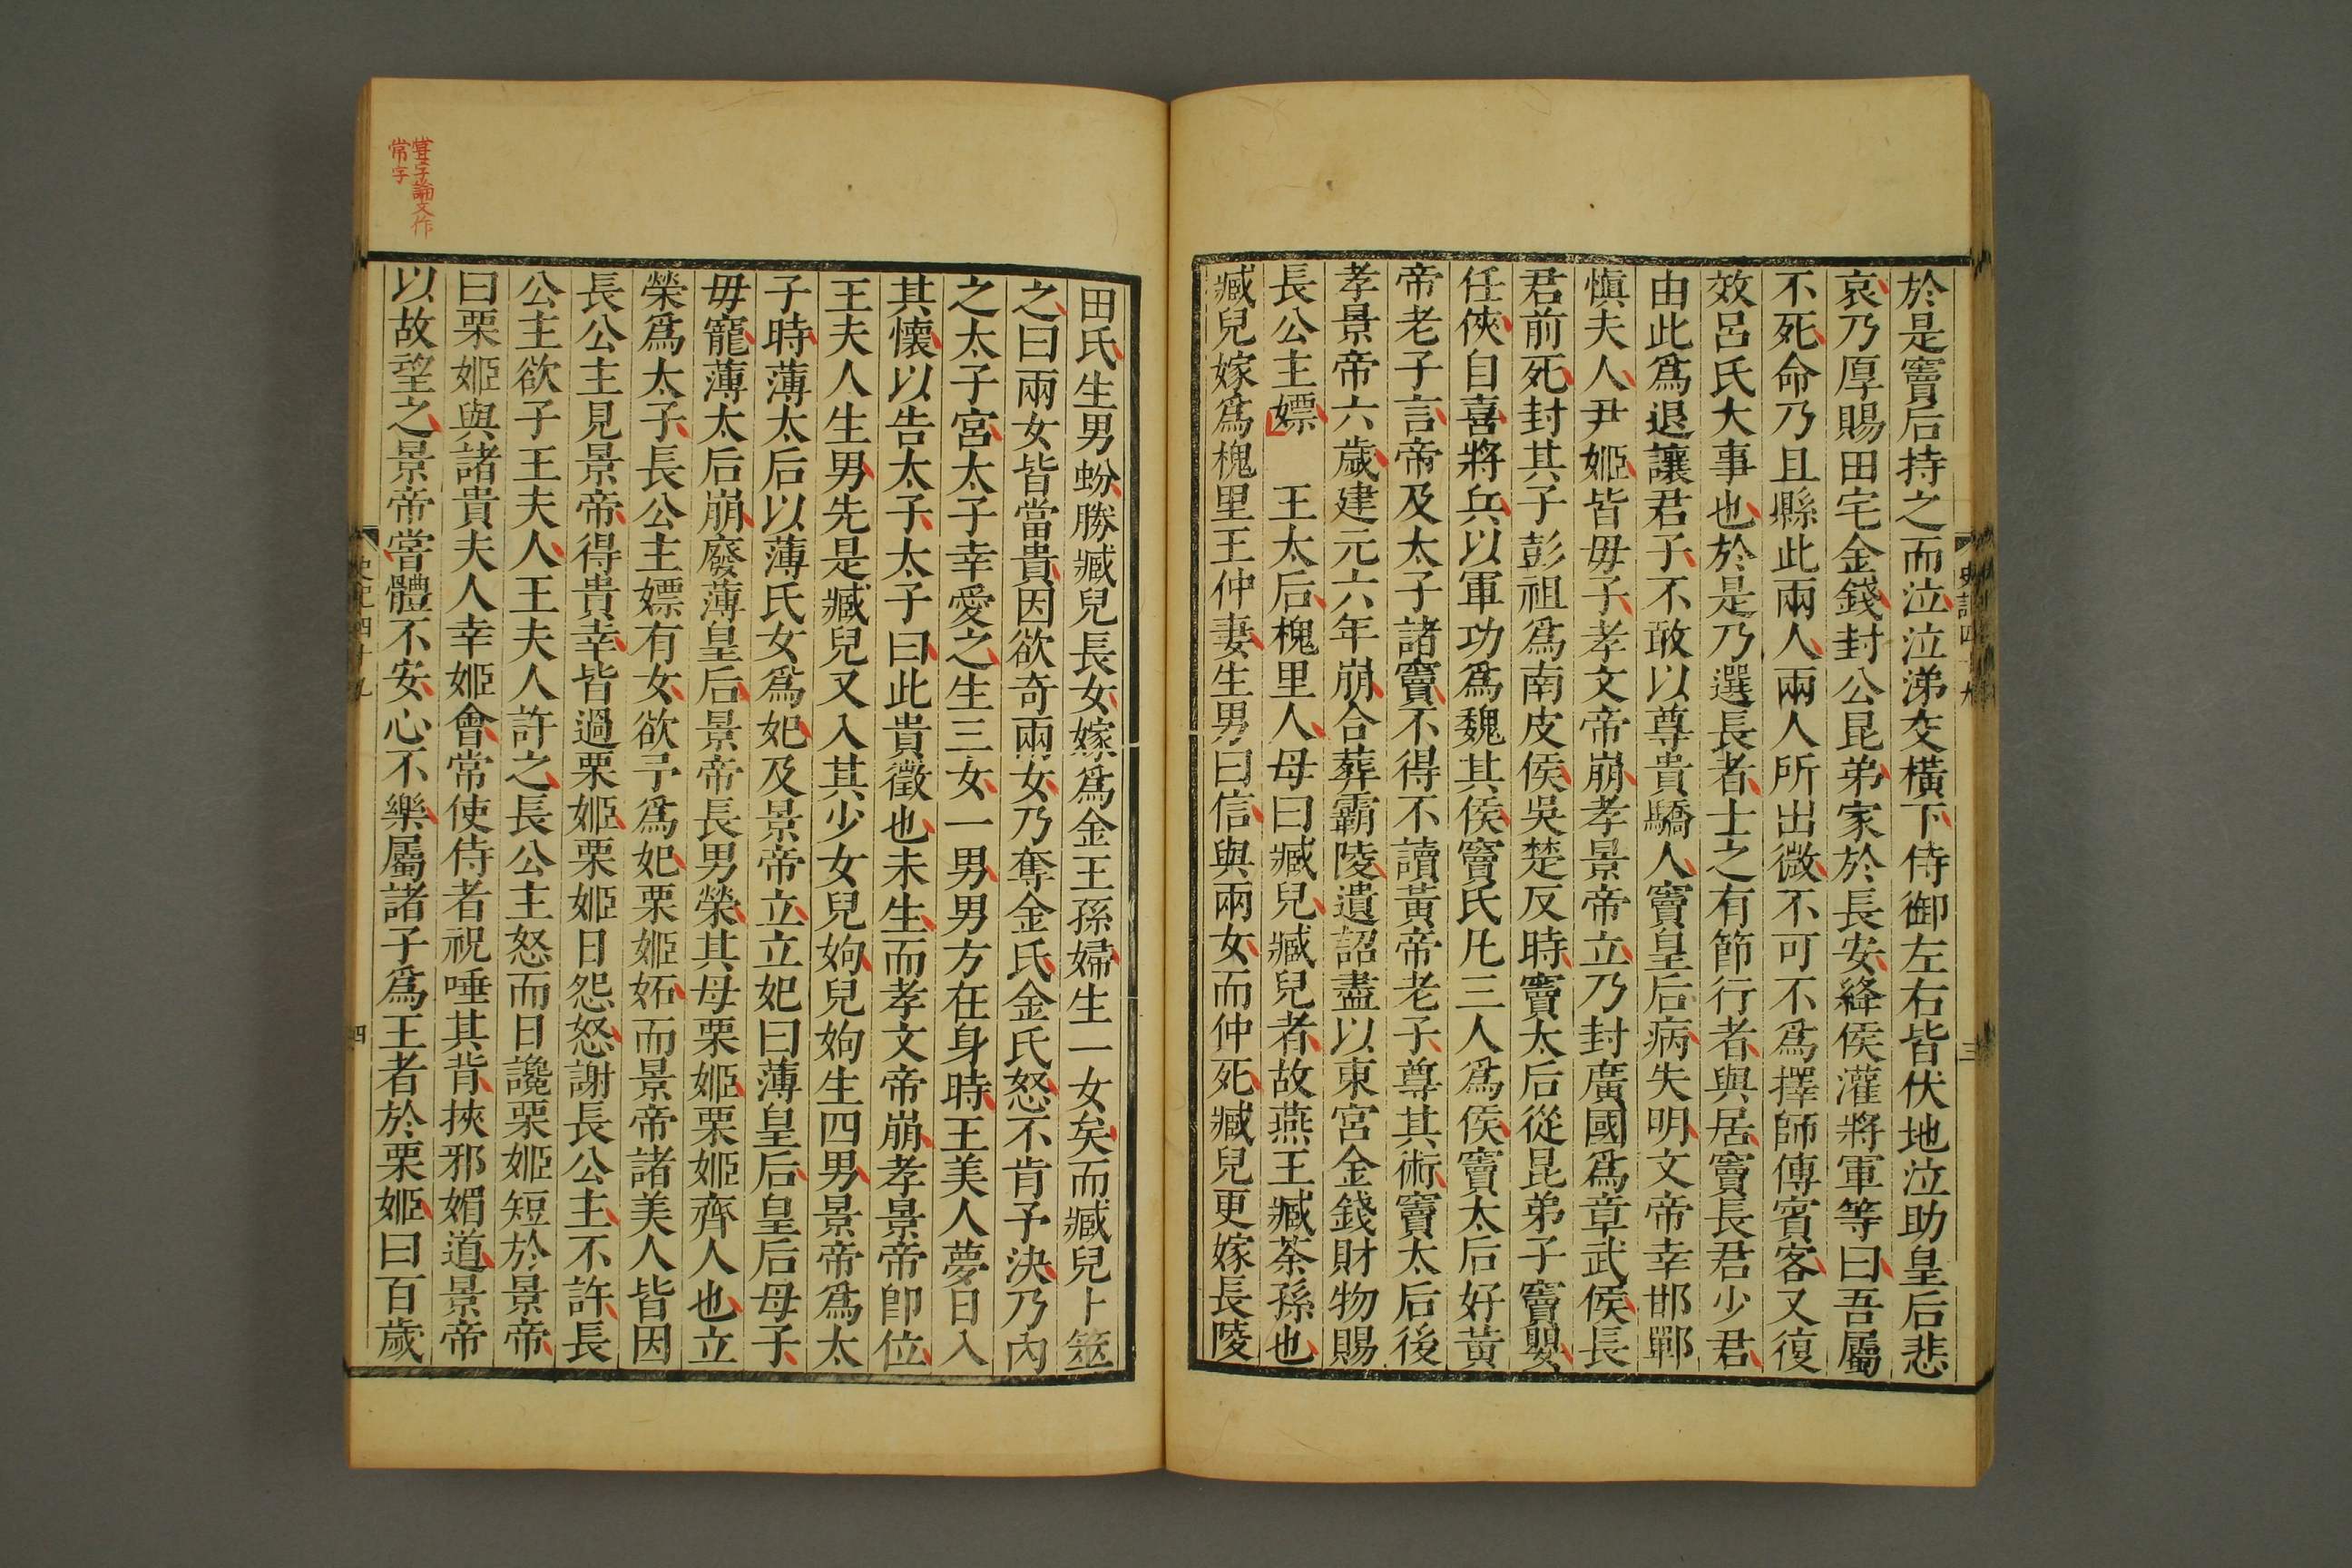 於是竇后持之而泣泣涕交橫下侍御左右皆伏地泣助皇后悲
哀乃厚賜田宅金錢封公昆弟家於長安絳侯灌將軍等曰吾屬
不死命乃且縣此兩人兩人所出微不可不爲擇師傅賓客又復
效呂氏大事也於是乃選長者士之有節行者與居竇長君少君
由此爲退讓君子不敢以尊貴驕人竇皇后病失明文帝幸邯鄲
愼夫人尹姬皆毋子孝文帝崩孝景帝立乃封廣國爲章武侯長
君前死封其子彭祖爲南皮侯吳楚反時竇太后從昆弟子竇嬰
任俠自喜將兵以軍功爲魏其侯竇氏凡三人爲侯竇太后好黃
帝老子言帝及太子諸竇不得不讀黃帝老子尊其術竇太后後
孝景帝六歲建元六年崩合葬霸陵遺詔盡以東宮金錢財物賜
長公主嫖　王太后槐里人母曰臧兒臧兒者故燕王臧荼孫也
臧兒嫁爲槐里王仲妻生男曰信與兩女而仲死臧兒更嫁長陵
史記四十九
三
田氏生男蚡勝臧兒長女嫁爲金王孫婦生一女矣而臧兒卜筮
之曰兩女皆當貴因欲奇兩女乃奪金氏金氏怒不肯予決乃內
之太子宮太子幸愛之生三女一男男方在身時王美人夢日入
其懷以告太子太子曰此貴徵也未生而孝文帝崩孝景帝卽位
王夫人生男先是臧兒又入其少女兒姁兒姁生四男景帝爲太
子時薄太后以薄氏女爲妃及景帝立立妃曰薄皇后皇后毋子
毋寵薄太后崩廢薄皇后景帝長男榮其母栗姬栗姬齊人也立
榮爲太子長公主嫖有女欲予爲妃栗姬妬而景帝諸美人皆因
長公主見景帝得貴幸皆過栗姬栗姬日怨怒謝長公主不許長
公主欲予王夫人王夫人許之長公主怒而日讒栗姬短於景帝
曰栗姬與諸貴夫人幸姬會常使侍者祝唾其背挾邪媚道景帝
以故望之景帝嘗體不安心不樂屬諸子爲王者於栗姬曰百歲
史記四十九
四
嘗字論文作
常字